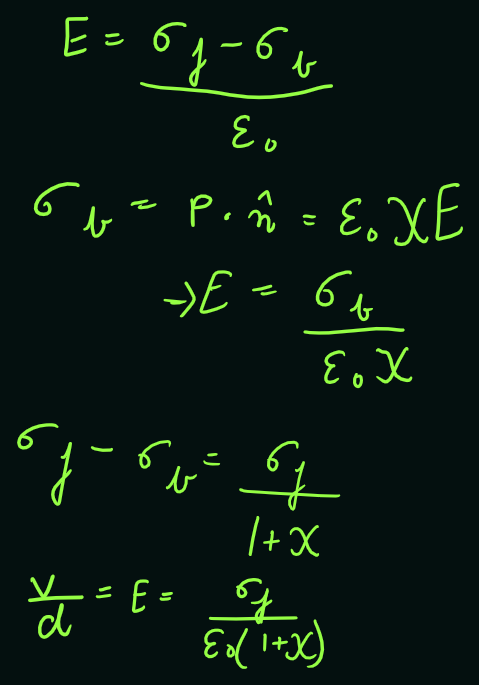 E = (σ_f − σ_b) / ε₀
σ_b = P · n̂ = ε₀ χ E
→ E = σ_b / (ε₀ χ)
σ_f − σ_b = σ_f / (1 + χ)
V/d = E = σ_f / (ε₀(1 + χ))